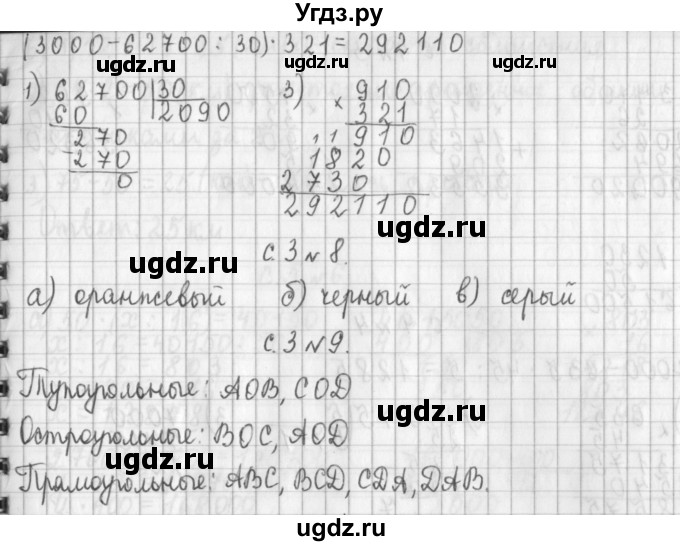 Угдз.ру
(3000-62700:30)·321=292110
1) 62700 30 3) 910
60 2090 × 321
270 910
270 1820
0 2730
292110
с.3 № 8.
а) оранжевый б) черный в) серый
с.3 № 9.
Тупоугольные: АОВ, СОD
Остроугольные: ВОС, АОD
Прямоугольные: АВС, ВСD, СDА, DАВ.
ugdz.ru
ugdz.ru
ugdz.ru
ugdz.ru
ugdz.ru
ugdz.ru
ugdz.ru
ugdz.ru
ugdz.ru
ugdz.ru
ugdz.ru
ugdz.ru